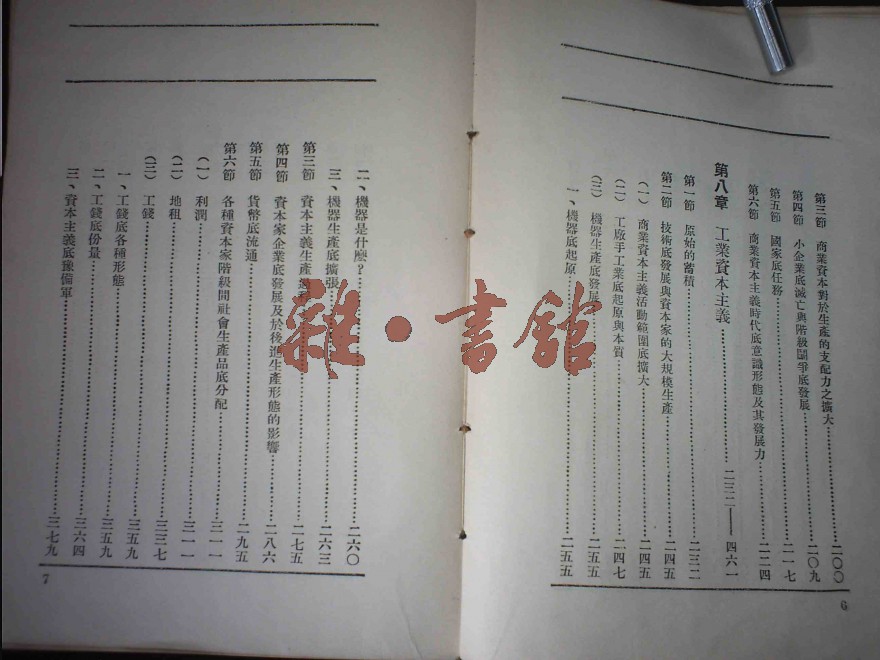 第三節 商業資本對於生產的支配力之擴大…………二〇〇
第四節 小企業底滅亡與階級鬭爭底發展…………二〇九
第五節 國家底任務…………二一七
第六節 商業資本主義時代底意識形態及其發展力…………二二四
第八章 工業資本主義…………二三二——四六一
第一節 原始的蓄積…………二三二
第二節 技術底發展與資本家的大規模生產…………二四五
(一) 商業資本主義活動範圍底擴大…………二四五
(二) 工廠手工業底起原與本質…………二四七
(三) 機器生產底發展…………二五五
一、機器底起原…………二五五
6
二、機器是什麼?…………二六〇
三、機器生產底擴張…………二六三
第三節 資本主義生產過程…………二七五
第四節 資本家企業底發展及於後進生產形態的影響…………二八六
第五節 貨幣底流通…………二九五
第六節 各種資本家階級間社會生產品底分配…………三一一
(一) 利潤…………三一一
(二) 地租…………三三七
(三) 工錢…………三五九
一、工錢底各種形態…………三五九
二、工錢底份量…………三六四
三、資本主義底豫備軍…………三七九
7
雜·書館